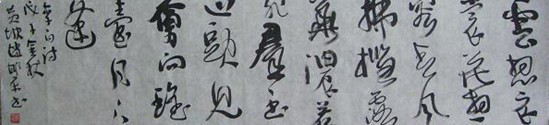 雲想衣
裳花想
容春風
拂檻露
華濃若
非羣玉
山頭見
會向瑤
臺月下
逢
李白詩
戊子秋